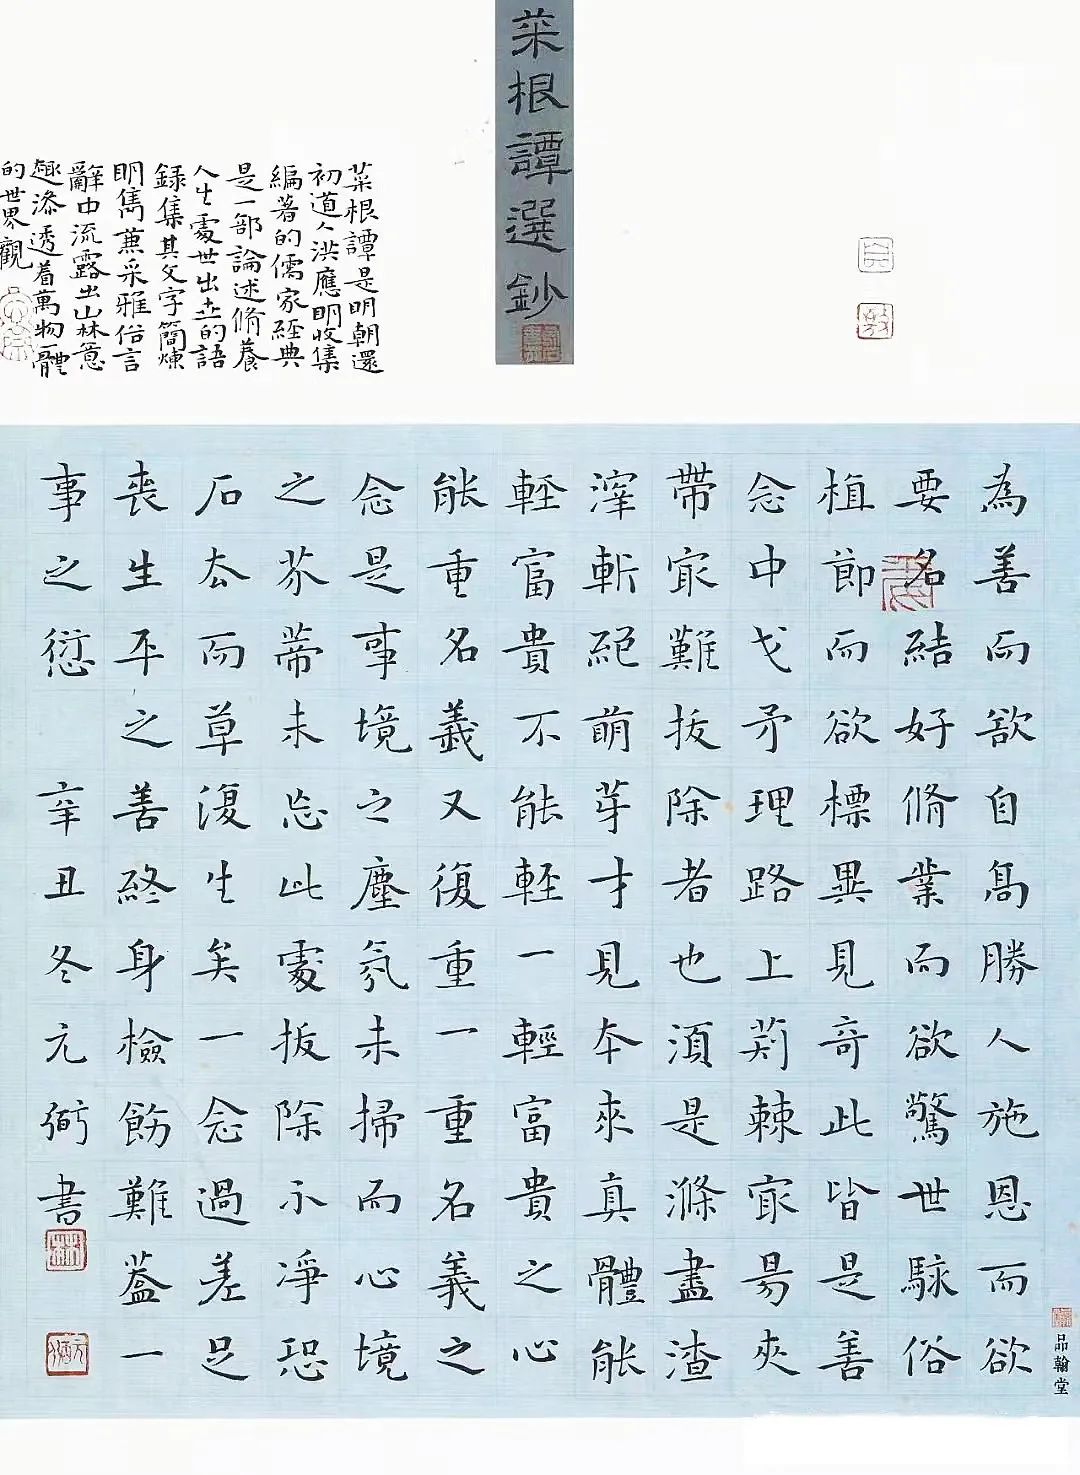 菜根譚選鈔
菜根譚是明朝還
初道人洪應明收集
編著的儒家經典
是一部論述脩養
人生處世出世的語
録集其文字簡煉
明雋蒹采雅俗言
辭中流露出山林意
趣滲透着萬物一體
的世界觀
為善而欲自高勝人施恩而欲
要名結好脩業而欲驚世駭俗
植節而欲標異見奇此皆是善
念中戈矛理路上荊棘㝡易夾
帶㝡難拔除者也須是滌盡渣
滓斬絕萌芽才見本來真體能
輕富貴不能輕一輕富貴之心
能重名義又復重一重名義之
念是事境之塵氛未掃而心境
之芥蒂未忘此處拔除不凈恐
石去而草復生矣一念過差足
喪生平之善終身檢飭難蓋一
事之愆 辛丑冬元弼書
品翰堂